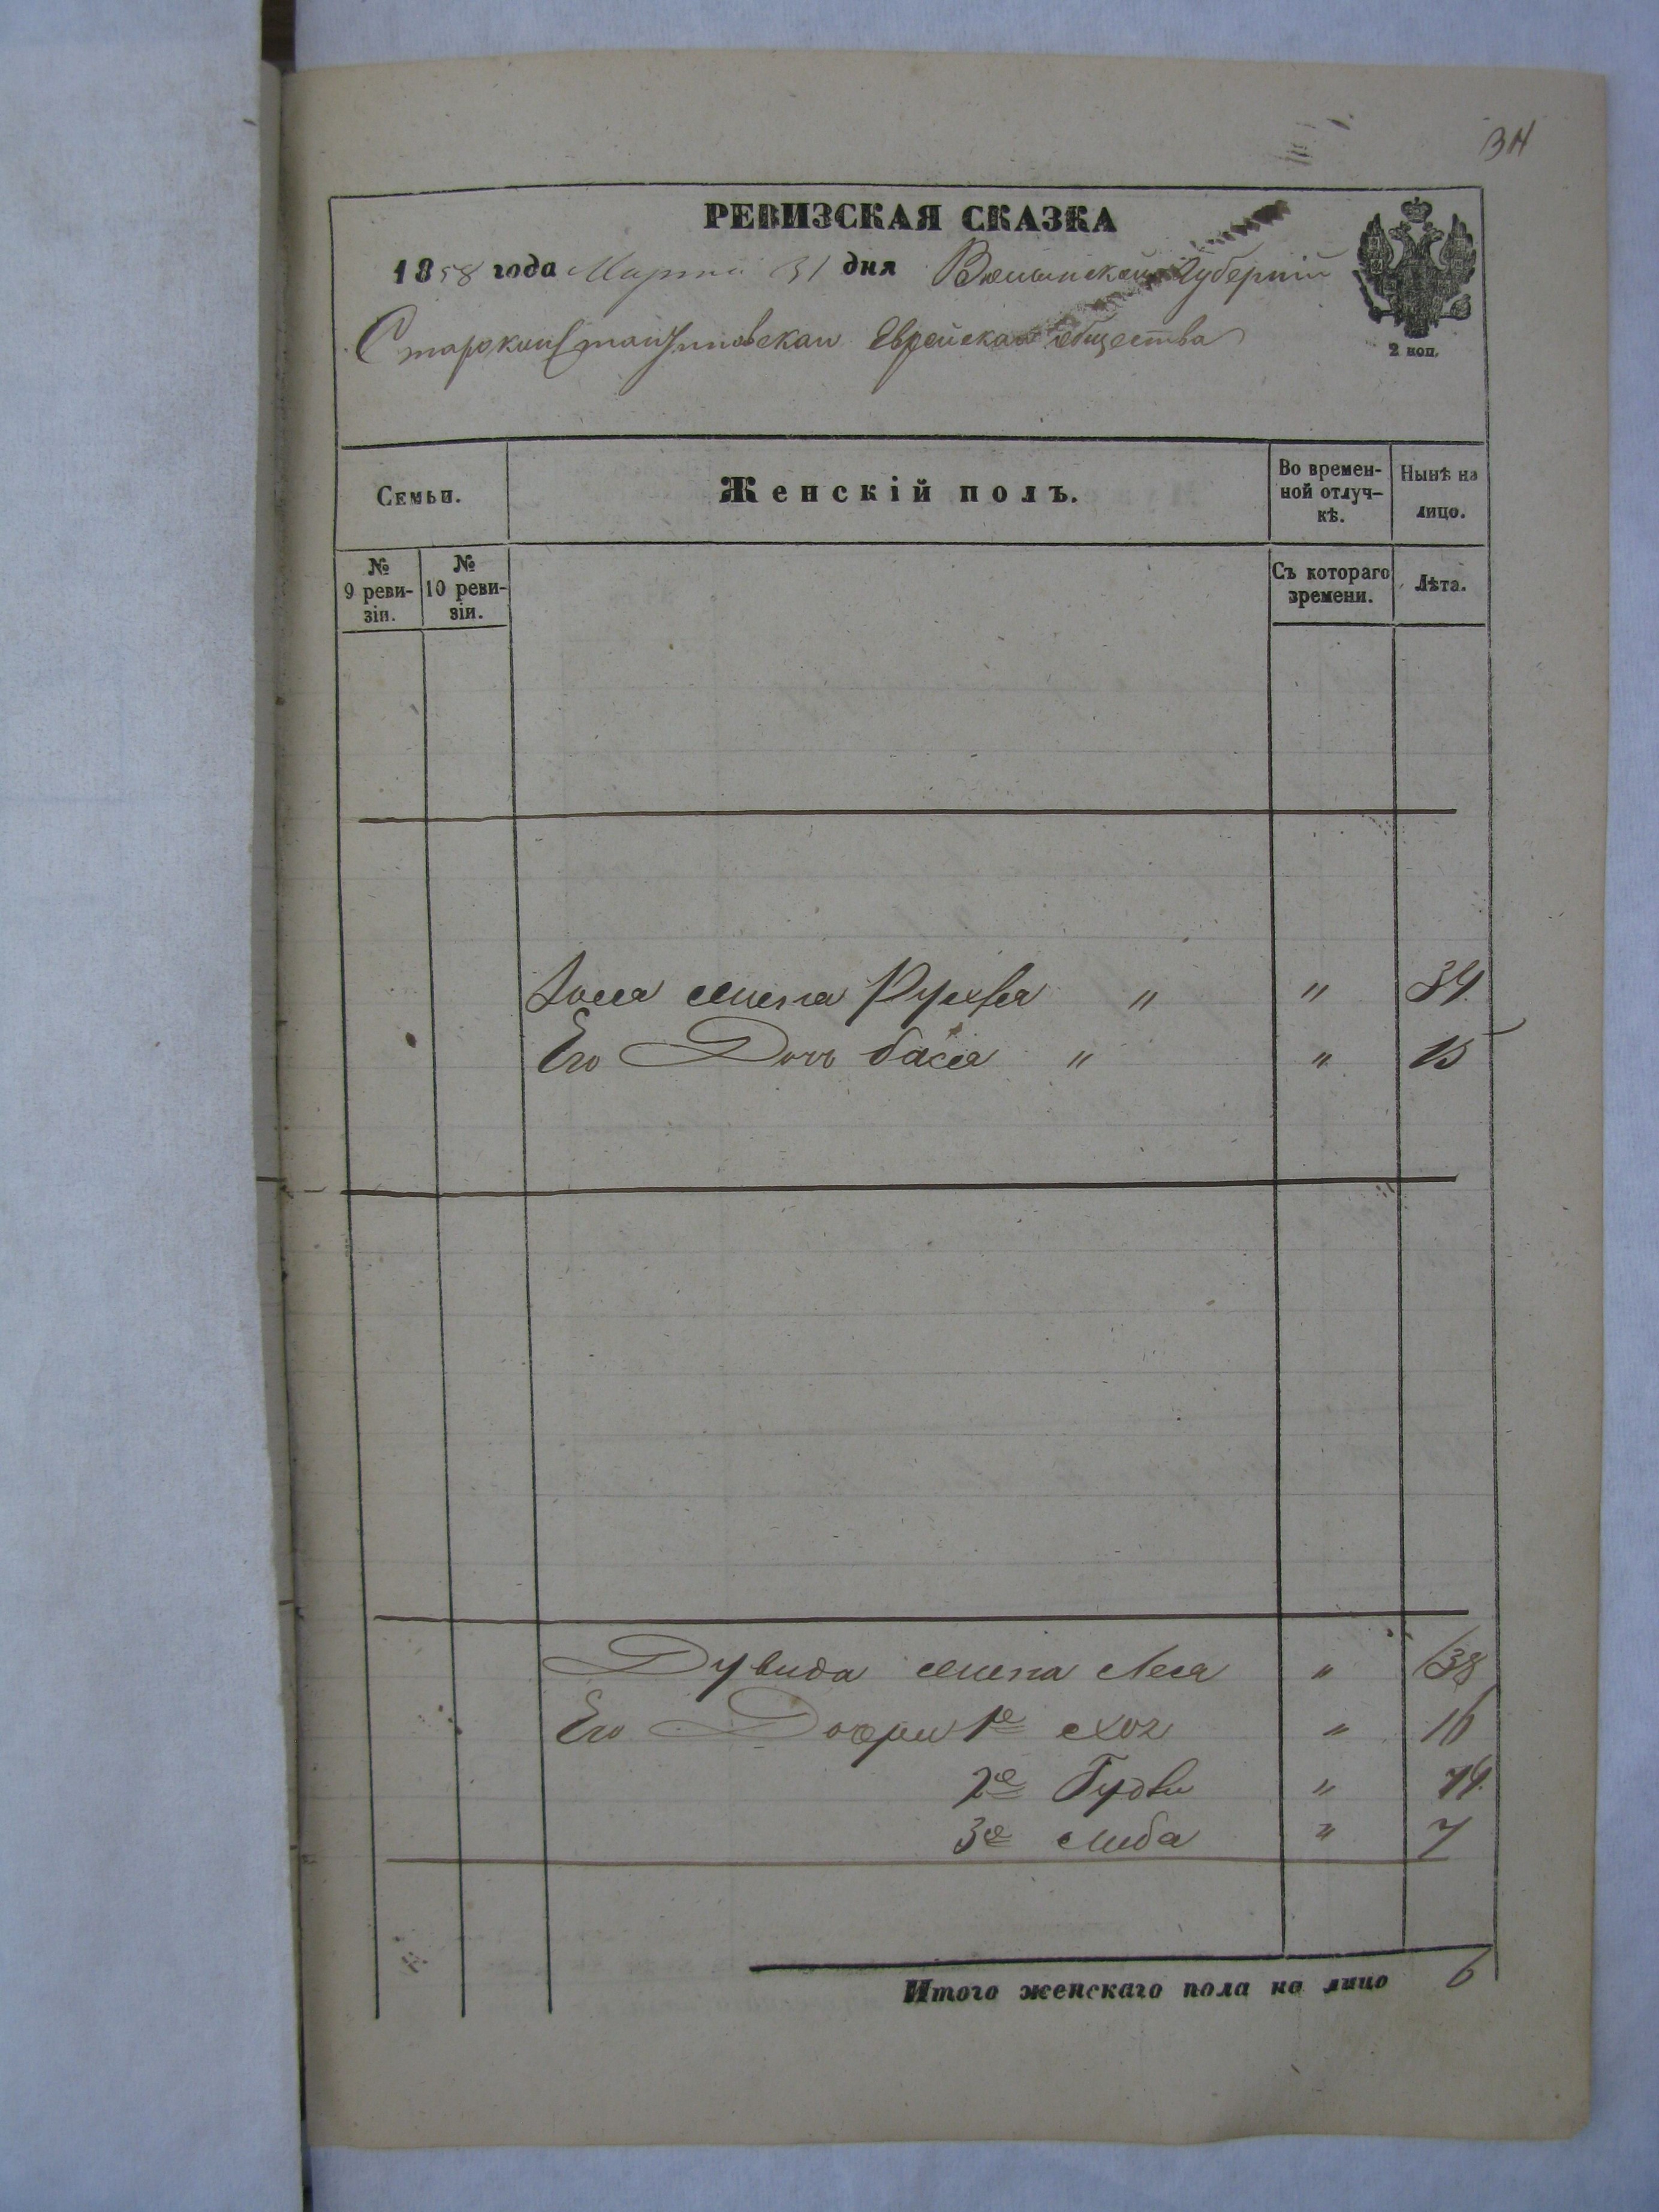 34
РЕВИЗСКАЯ СКАЗКА
1858 года Марта 31 дня Волынской Губерніи
Староконстантиновскаго Еврейскаго общества
2 коп.
Семьи.
Женскій полъ.
Во времен-
ной отлуч-
кѣ.
Нынѣ на
лицо.
№
9 реви-
зіи.
№
10 реви-
зіи.
Съ котораго
времени.
Лѣта.
жена Рухля " " 34
Его Дочь Бася " " 15
Дувида жена Лея " 38
Его Дочери 1я " 16
2я " 14
3я Либа " 7
Итого женскаго пола на лицо 6